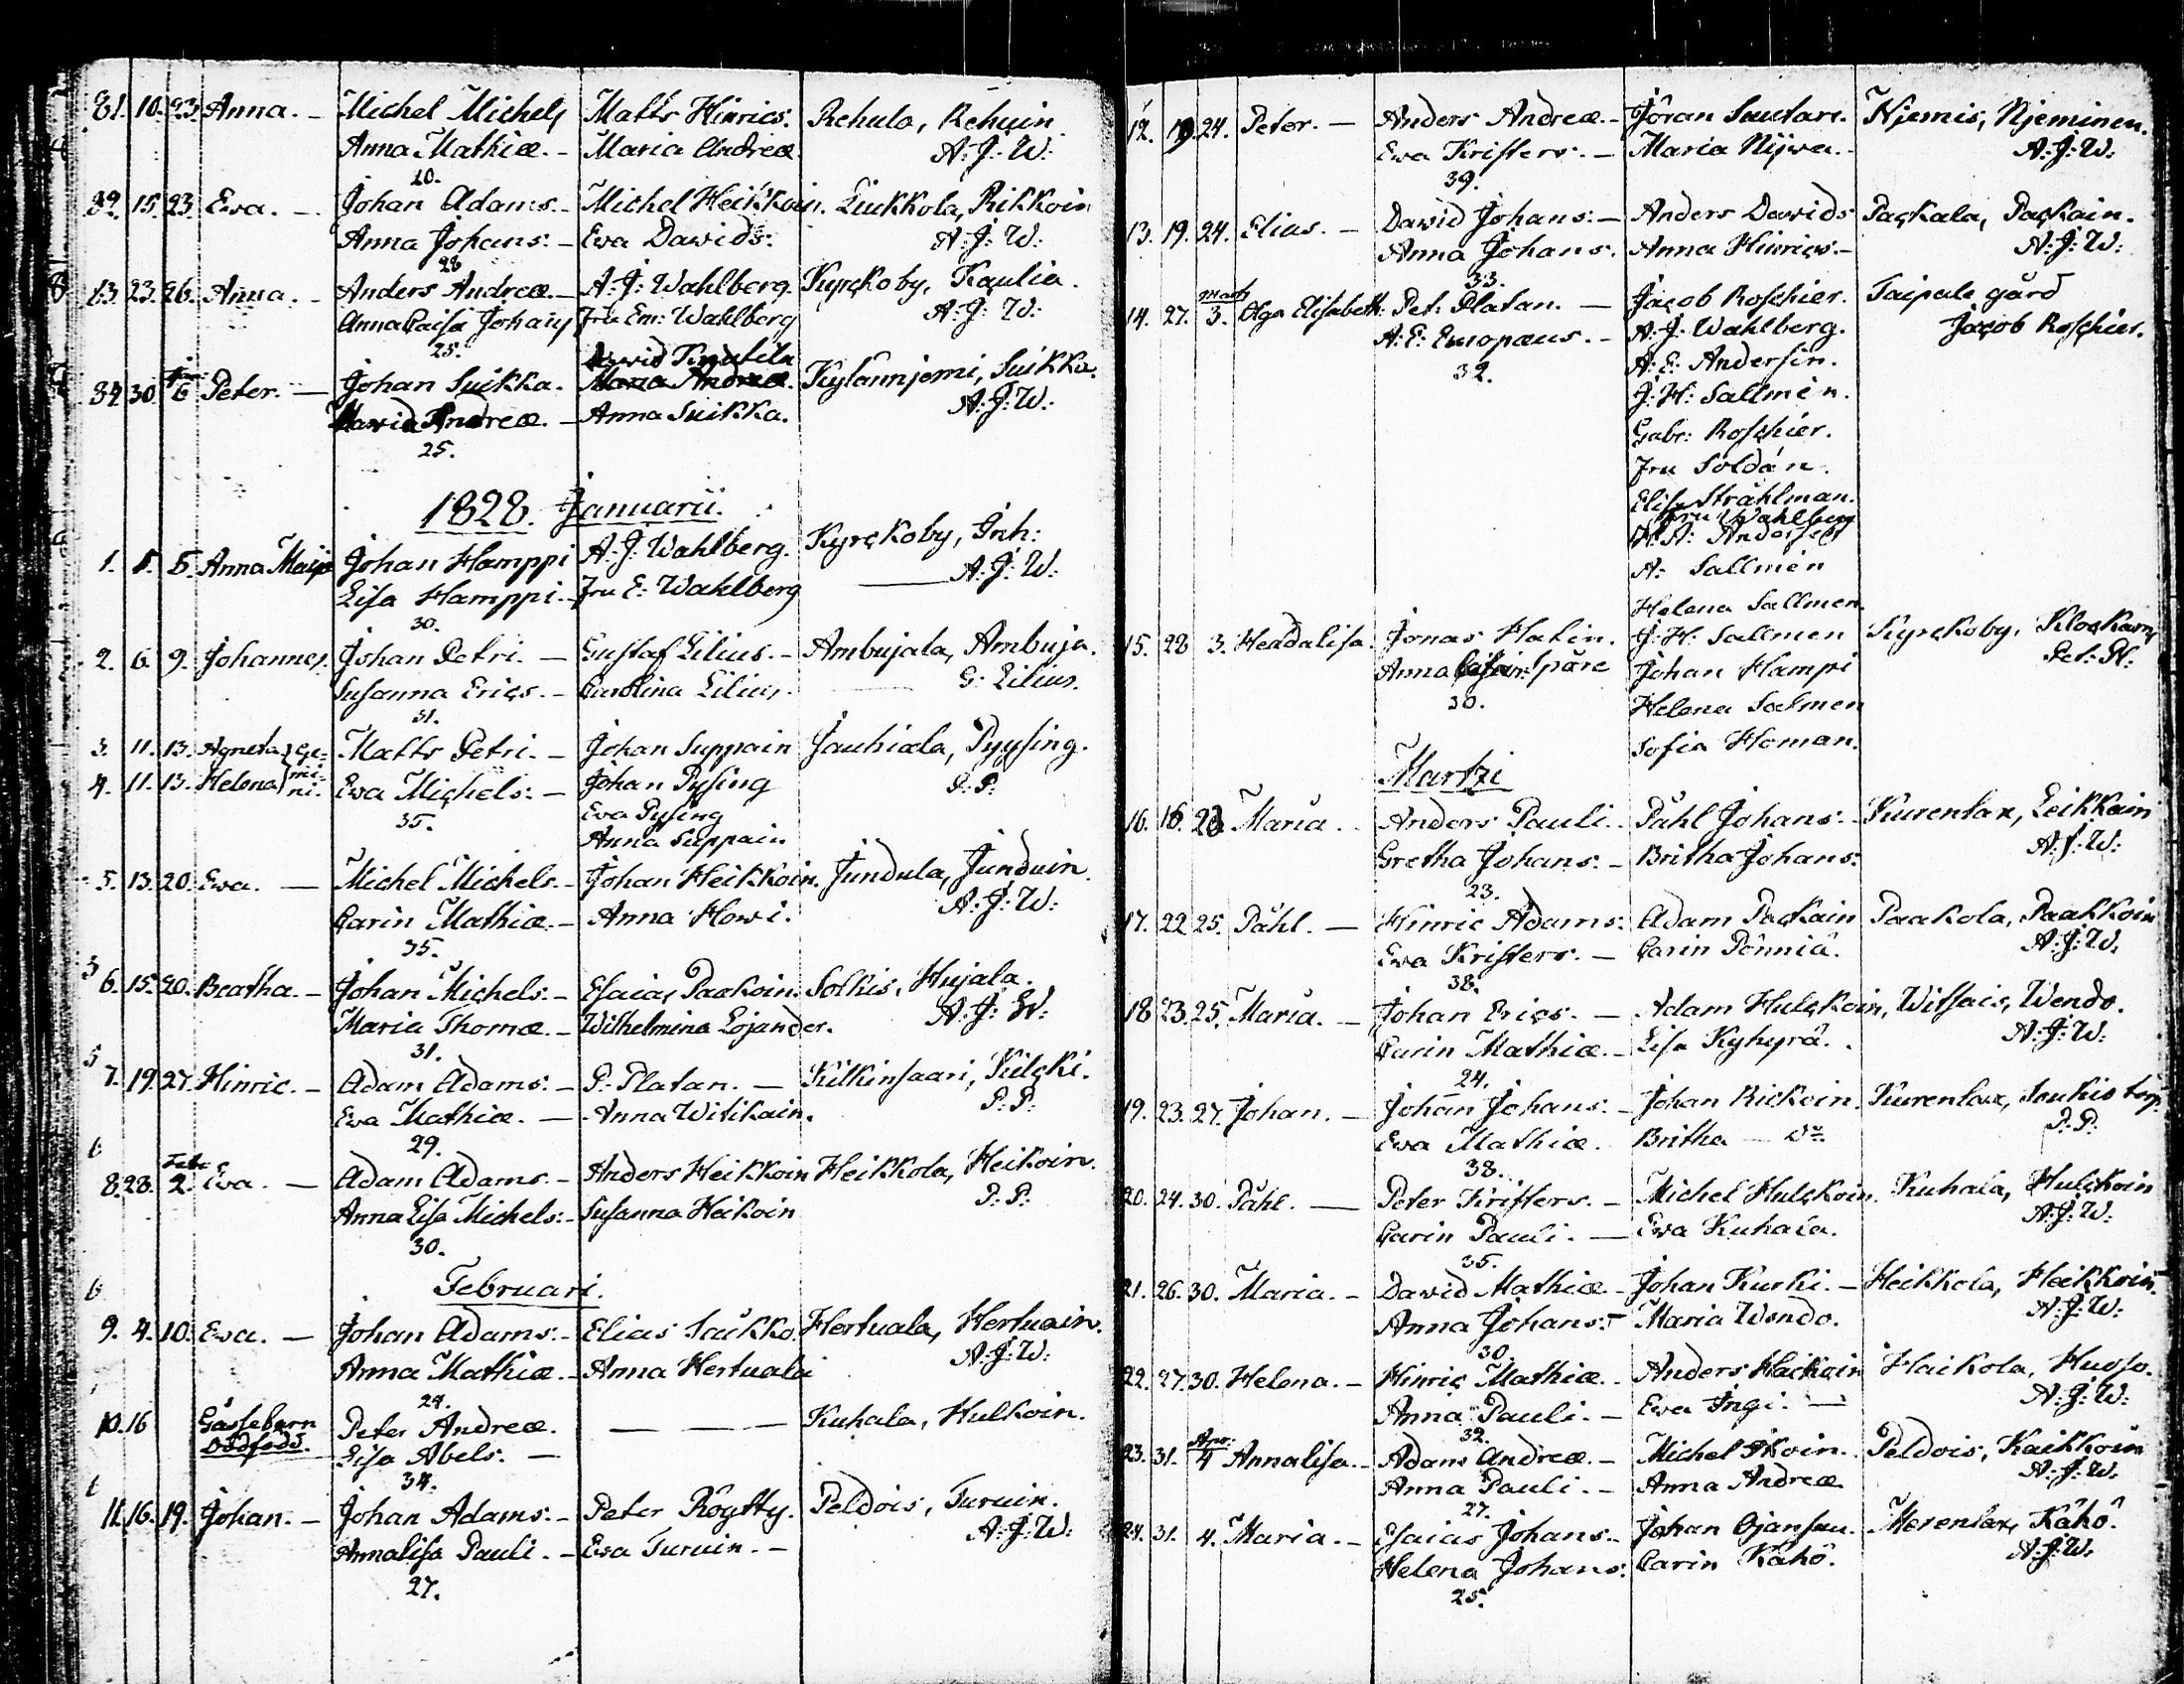 81. 10. 23. Anna. - Michel Michels Matts Hinrics. Rehula, Rehuin
Anna Mathiæ. - Maria Andreæ A: J: W:
20.
82. 15. 23. Eva. - Johan Adams. - Michel Heikkoin. Liukkola, Rikkoin
Anna Johans: - Eva Dawids: A: J: W:
28
13. 23. 26. Anna. - Anders Andreæ. - A: J: Wahlberg. Kyrckoby, Kaulia.
Anna Caisa Johans Fru Em: Wahlberg A: J: W:
25.
Dawid
84. 30. 6 Peter. - Johan Suikka. Kylänniemi, Suikka.
Andreæ. - Anna Suikka. A: J: W:
25.
1828. Januarii.
1. 5. Anna Maija Johan Hamppi A: J: Wahlberg. Kyrckoby, Inh:
Lisa Hamppi. - Fru E: Wahlberg A: J: W:
30.
2. 6. 9. Johannes. Johan Petri. - Gustaf Lilius. - Ambujala, Ambuja.
Susanna Erics. - Carolina Lilius. G: Lilius.
31.
3. 11. 13. Agneta } ge- Matts Petri. - Johan Suppain Jauhiala, Pyysing.
4. 11. 13. Helena } mi- ni. Eva Michels: - Johan Pysing P: P:
35. Eva Pysing
Anna Suppain.
5. 13. 20. Eva. - Michel Michels. - Johan Heikkoin. Jundula, Junduin.
Carin Mathiæ. - Anna Howi. A: J: W:
35.
6. 15. 20. Beatha. - Johan Michels: - Esaias Paakoin. Solkis, Hujala.
Maria Thomæ. - Wilhelmina Lojander. A: J: W:
31.
7. 19. 27. Hinric. - Adam Adams: - P: Platan. - Kilkinsaari, Kilcki.
Eva Mathiæ. - Anna Witikain. P: P:
29.
8. 28. Febr: 2. Eva. - Adam Adams. - Anders Heikkoin Heikkola, Heikoin.
Anna Lisa Michels: - Susanna Heikoin P: P:
30.
Februari.
9. 4. 10. Eva. - Johan Adams: - Elias Saukko. Hertuala, Hertuain.
Anna Mathiæ. - Anna Hertualai A: J: W:
24.
10. 16 Gåssebarn Peter Andreæ. - - - Kuhala, Hulkoin.
Dödfödd. Lisa Abels: -
34.
11. 16. 19. Johan. - Johan Adams: - Peter Röytty. Peldois, Turuin.
Annalisa Pauli. - Eva Turuin. - A: J: W:
27.
12. 19. 24. Peter. - Anders Andreæ. - Jöran Suutari. Njemis, Njeminen.
Eva Kristers. - Maria Nijwa. - A: J: W:
39.
13. 19. 24. Elias. - Dawid Johans: - Anders Dawids Packala, Packain.
Anna Johans. Anna Hinrics. - A: J: W:
33.
14. 27. Marts 3. Olga Elisabeth. Pet: Platan. - Jacob Roschier. Taipale gård
A: E: Europæus. - A: J: Wahlberg. Jacob Roschier.
32. A: E: Andersin.
J: H: Sallmén.
Gabr: Roschier.
Fru Soldan.
Elise Stråhlman.
Fru Wahlberg
A: Andersin
A: Sallmén
Helena Sallmen.
15. 28 3. Headalisa. Jonas Hatin. J: H: Sallmen Kyrckoby, Klockars
Anna Johan Hampi Pet: Pl:
30. Helena Salmen
Sofia Homan.
Martzi
16. 16. 23 Maria. - Anders Pauli. - Påhl Johans: - Kurentax, Leikkain
Gretha Johans: - Britha Johans: A: J: W:
23.
17. 22. 25. Påhl. - Hinric Adams: Adam Packain Paakola, Paakkoin
Eva Kristers. - Carin Pönniä. A: J: W.
38.
18. 23. 25. Maria. - Johan Erics. - Adam Hulckoin, Witsais, Wendo.
Carin Mathiæ. - Lisa Kyhyrä. A: J: W:
24.
19. 23. 27. Johan. - Johan Johans: - Johan Rickoin. Kurentax, Soukis torp.
Eva Mathiæ. Britha - Do. P: P:
38.
20. 24. 30. Påhl. - Peter Kristers. - Michel Hulckoin. Kuhala, Hulckoin
Carin Pauli. - Eva Kuhala. A: J: W:
35.
21. 26. 30. Maria. - Dawid Mathiæ. - Johan Kurki. - Heikkola, Heikkoin.
Anna Johans: - Maria Wendo. A: J: W:
30.
22. 27. 30. Helena. - Hinric Mathiæ. - Anders Haikoin Haikola, Huoso.
Anna Pauli. - Eva Ingi. - A: J: W:
32.
23. 31. Apr: 4 Annalisa. - Adam Andreæ. - Michel Ikoin. Peldois, Kaikkoin
Anna Pauli. - Anna Andreæ A: J: W.
27.
24. 31. 4. Maria. - Esaias Johans: - Johan Ojansuu. Merentax, Kähö.
Helena Johans: Carin Kähö. A: J: W.
25.